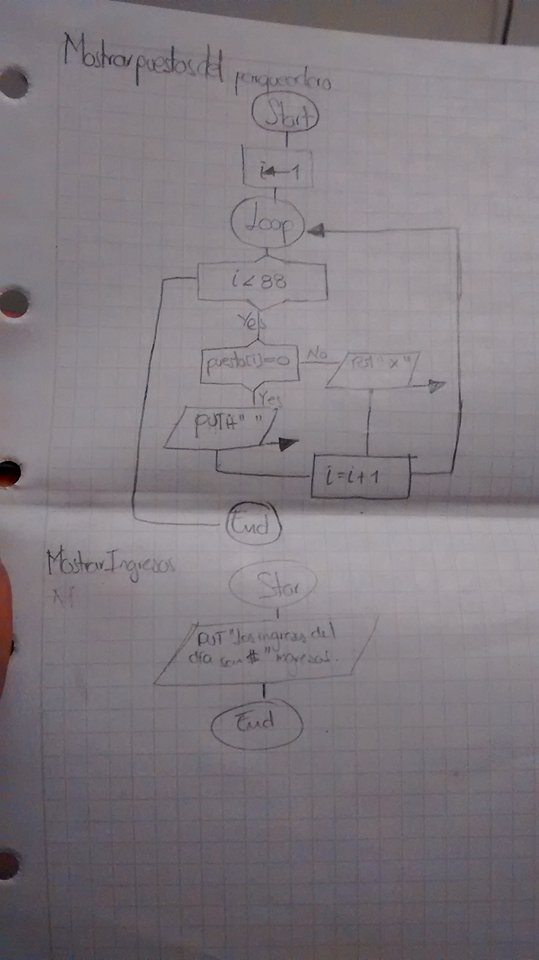 Mostrar puestos del parqueadero
Start
i ← 1
Loop
i < 88
Yes
puesto(i)=0
No
PUT "x"
Yes
PUT i " "
i = i + 1
End
Mostrar Ingresos
M
Star
PUT "los ingresos del
día son $" ingresos.
End